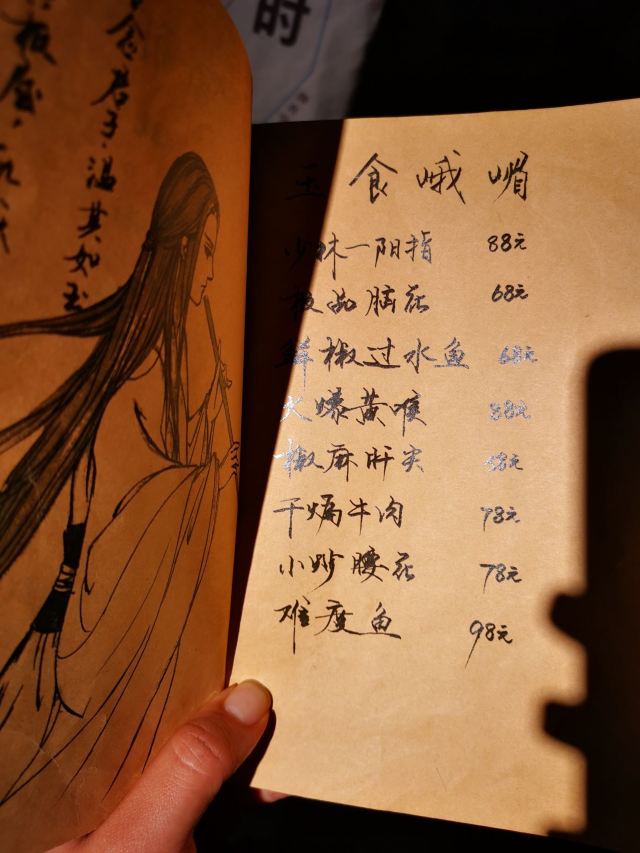 时
念君子，温其如玉
板屋，乱我
玉食峨嵋
少林一阳指 88元
极品脑花 68元
鲜椒过水鱼 68元
火爆黄喉 88元
椒麻肝尖
干煸牛肉 78元
小炒腰花 78元
难度鱼 98元